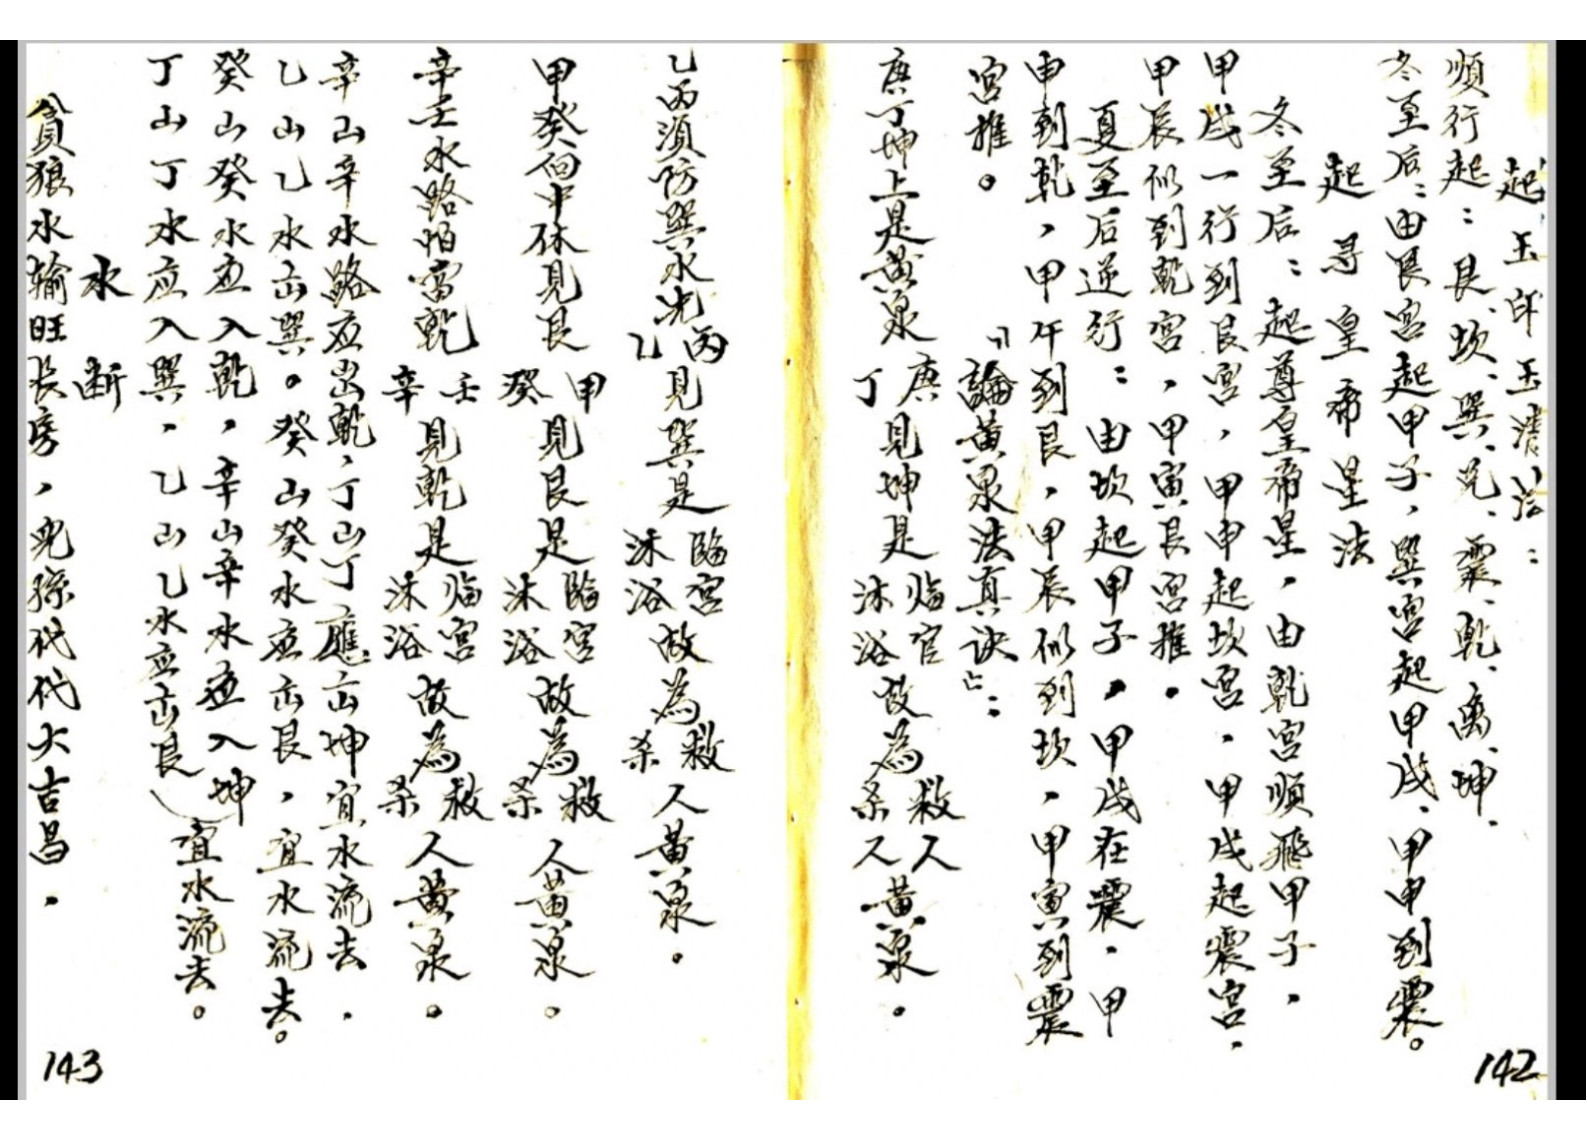 起玉印玉清法：
順行起：艮、坎、巽、兑、震、乾、离、坤.
冬至后：由艮宫起甲子，巽宫起甲戌、甲申到震。
起尋皇帝星法
冬至后：起尊皇帝星，由乾宫順飛甲子，
甲戌一行到艮宫，甲申起坎宫，甲戌起震宫，
甲辰似到乾宫，甲寅艮宫推.
夏至后逆行：由坎起甲子，甲戌在震，甲
申到乾，甲午到艮，甲辰似到坎，甲寅到震
宫推。
『論黄泉法真诀』：
庚丁坤上是黄泉 庚丁見坤是临官沐浴故為救人杀人黄泉。
乙丙須防巽水先 丙乙見巽是臨宫沐浴故為救杀人黄泉。
甲癸向中休見艮 甲癸見艮是臨宫沐浴故為救杀人黄泉。
辛壬水路怕當乾 壬辛見乾是临宫沐浴故為救杀人黄泉。
辛山辛水路应出乾，丁山丁應出坤宜水流去.
乙山乙水出巽。癸山癸水应出艮，宜水流去。
癸山癸水应入乾，辛山辛水应入坤
丁山丁水应入巽，乙山乙水应出艮 宜水流去。
水断
貪狼水输旺长房，児孫代代大吉昌.
143
142